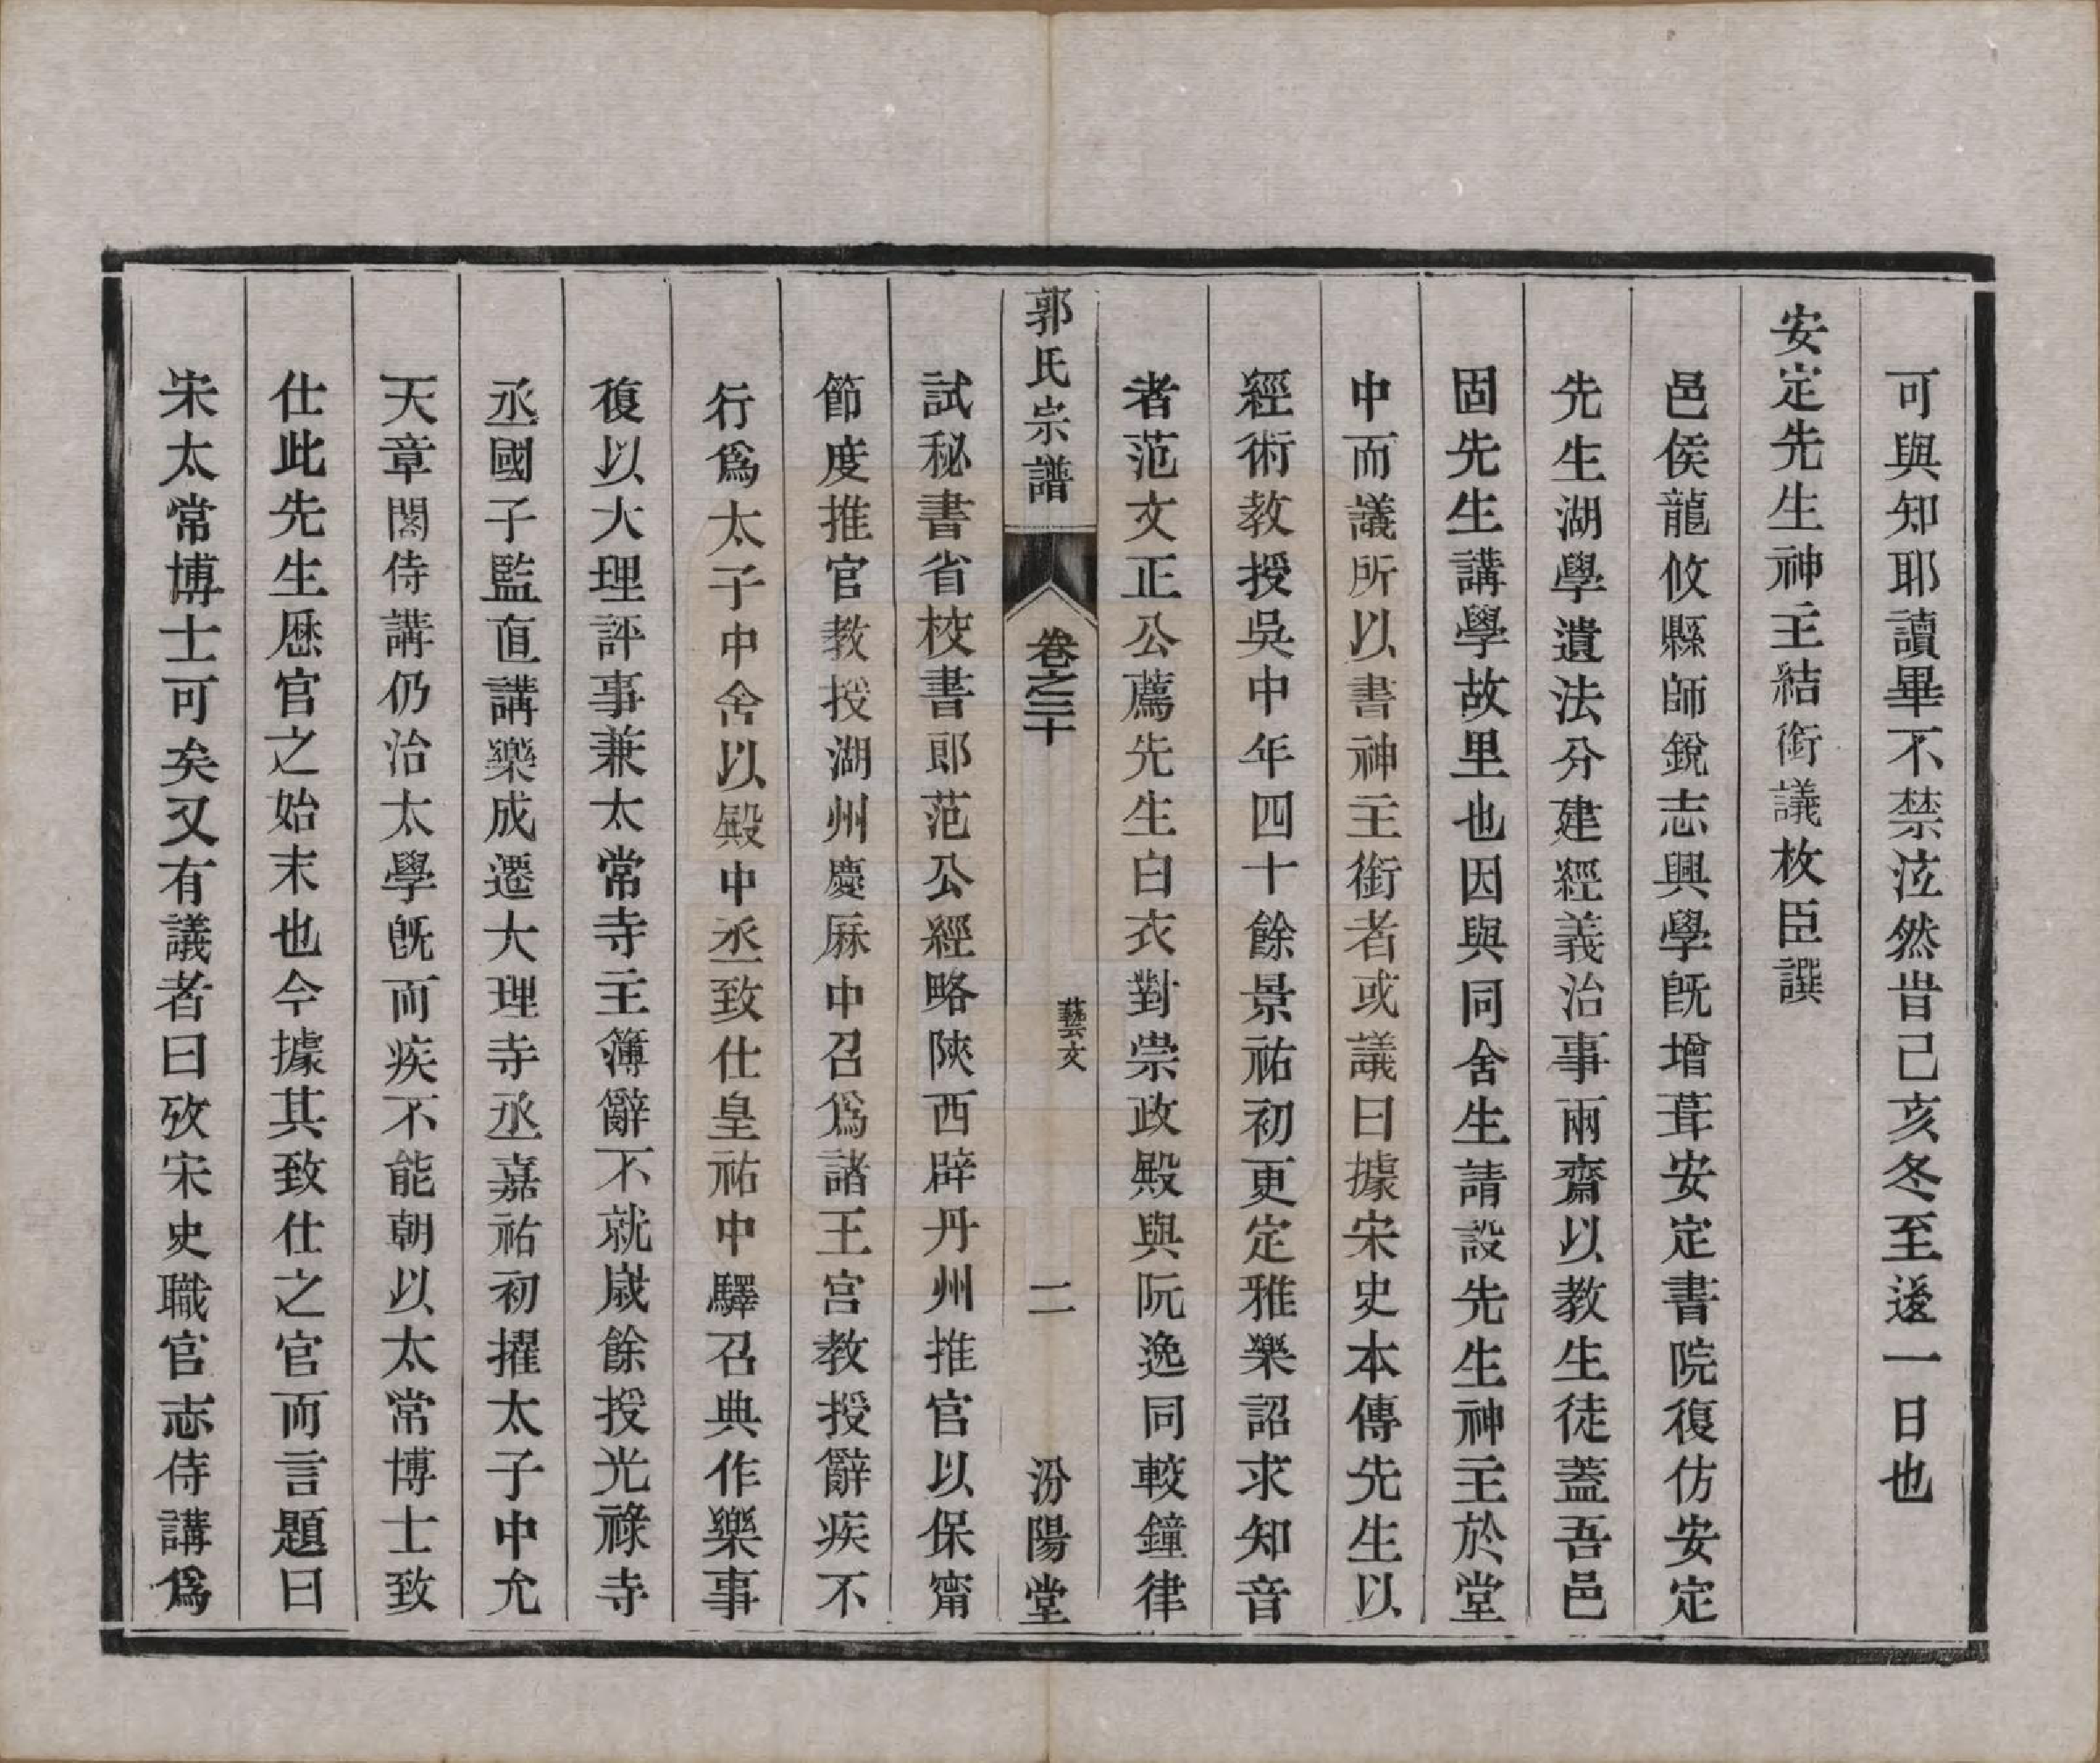 可與知耶讀畢不禁泣然昔己亥冬至後一日也
安定先生神主結銜議枚臣譔
邑侯龍攸縣師銳志興學旣增葺安定書院復仿安定
先生湖學遺法分建經義治事兩齋以教生徒蓋吾邑
固先生講學故里也因與同舍生請設先生神主於堂
中而議所以書神主銜者或議曰據宋史本傳先生以
經術教授吳中年四十餘景祐初更定雅樂詔求知音
者范文正公薦先生白衣對崇政殿與阮逸同較鐘律
郭氏宗譜 卷之三十 藝文 二 汾陽堂
試秘書省校書郎范公經略陝西辟丹州推官以保甯
節度推官教授湖州慶厤中召爲諸王宮教授辭疾不
行爲太子中舍以殿中丞致仕皇祐中驛召典作樂事
復以大理評事兼太常寺主簿辭不就歲餘授光祿寺
丞國子監直講樂成遷大理寺丞嘉祐初擢太子中允
天章閣侍講仍治太學旣而疾不能朝以太常博士致
仕此先生歷官之始末也今據其致仕之官而言題曰
宋太常博士可矣又有議者曰攷宋史職官志侍講爲